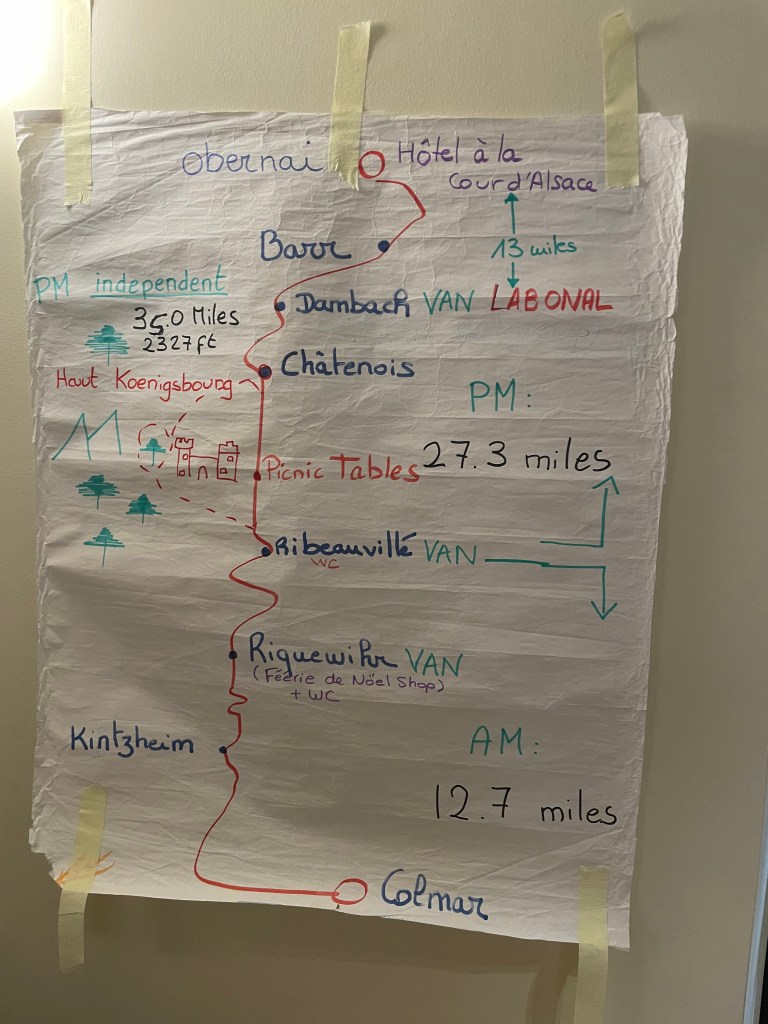 Obernai
Hôtel à la
Cour d'Alsace
Barr
13 miles
PM independent
35.0 Miles
2327ft
Dambach VAN LABONAL
Châtenois
Haut Koenigsbourg
PM:
27.3 miles
Picnic Tables
Ribeauvillé VAN
WC
Riquewihr VAN
(Féérie de Nöel Shop)
+ WC
Kintzheim
AM:
12.7 miles
Colmar